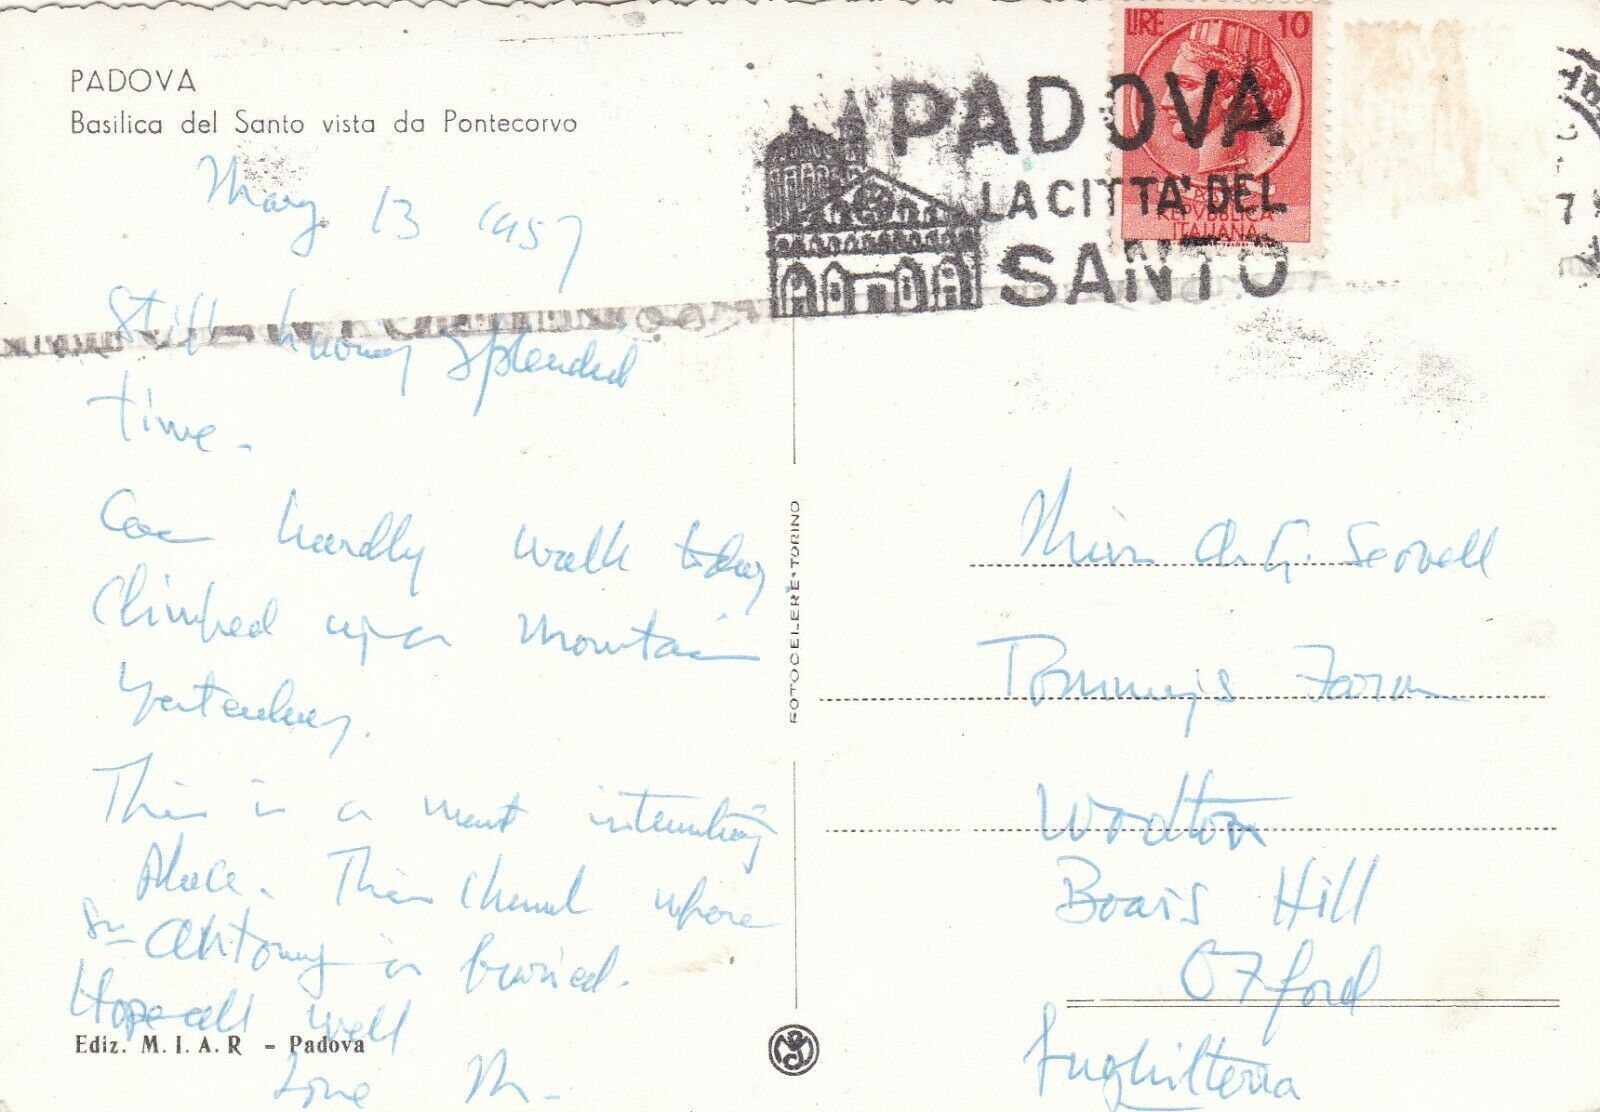 PADOVA
Basilica del Santo vista da Pontecorvo
May 13 1957
Still having splendid
time.
Can hardly walk today
Climbed up a mountain
yesterday.
This is a most interesting
place. This church where
St Antony is buried.
Hope all well
Love M.
Ediz. M.I.A.R - Padova
FOTOCELERE·TORINO
PADOVA
LA CITTA' DEL
SANTO
LIRE 10
REPVBBLICA
ITALIANA
Miss A. G. Scovell
Tommy's Farm
Wootton
Boars Hill
Oxford
Inghilterra